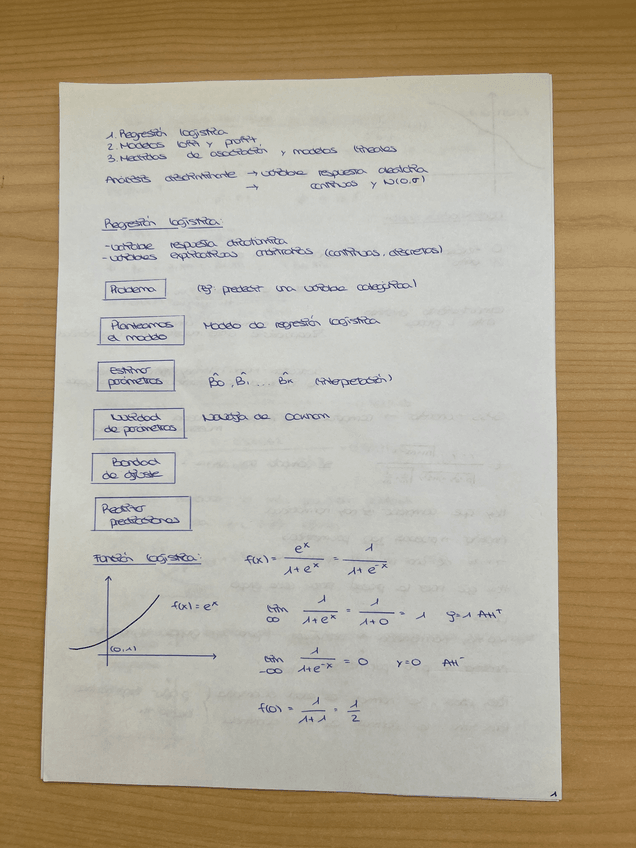 1. Regresión logística
2. Modelos logit y probit
3. Medidas de asociación y modelos lineales
Análisis discriminante → variable respuesta aleatoria
→ continuas y N(0,σ)
Regresión logística:
- variable respuesta dicotómica
- variables explicativas (continuas, discretas)
Problema (Ej: predecir una variable categórica)
Planteamos el modelo Modelo de regresión logística
Estimar parámetros β̂0, β̂1 .... β̂k (interpretación)
Nulidad de parámetros Navaja de Ockham
Bondad de ajuste
Realizar predicciones
Función logística: f(x) = e^x / (1+e^x) = 1 / (1+e^-x)
f(x) = e^x
(0,1)
lim ∞ 1 / (1+e^x) = 1 / (1+0) = 1 y=1 AH+
lim -∞ 1 / (1+e^-x) = 0 y=0 AH-
f(0) = 1 / (1+1) = 1/2
1